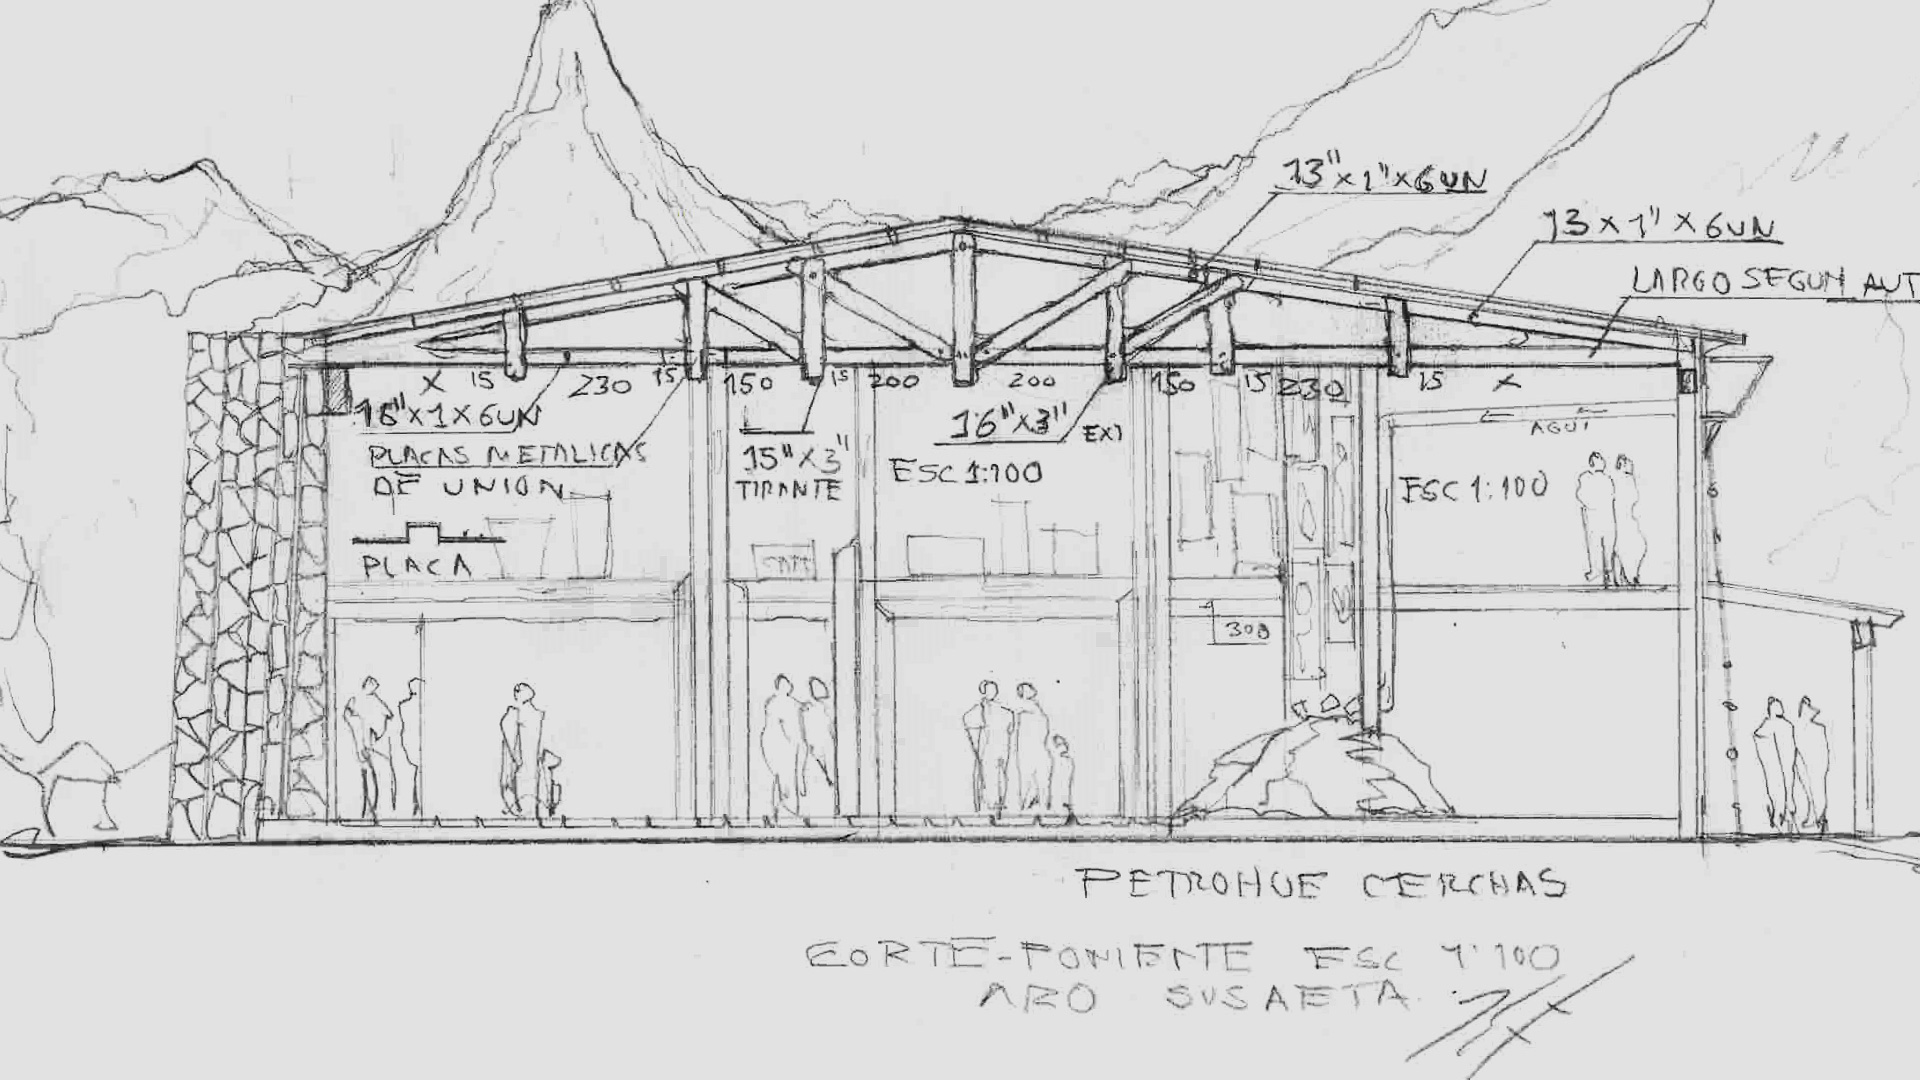 13"x1"x6UN
13x1"x6UN
LARGO SEGUN AUT
X 15 230 15 150 15 200 200 150 15 230 15 X
16"x1x6UN
PLACAS METALICAS
DE UNION
PLACA
15"x3"
TIRANTE
16"x3"
EXT
ESC 1:100
AGUI
ESC 1:100
300
PETROHUE CERCHAS
CORTE-PONIENTE ESC 1:100
ARQ SUSAETA